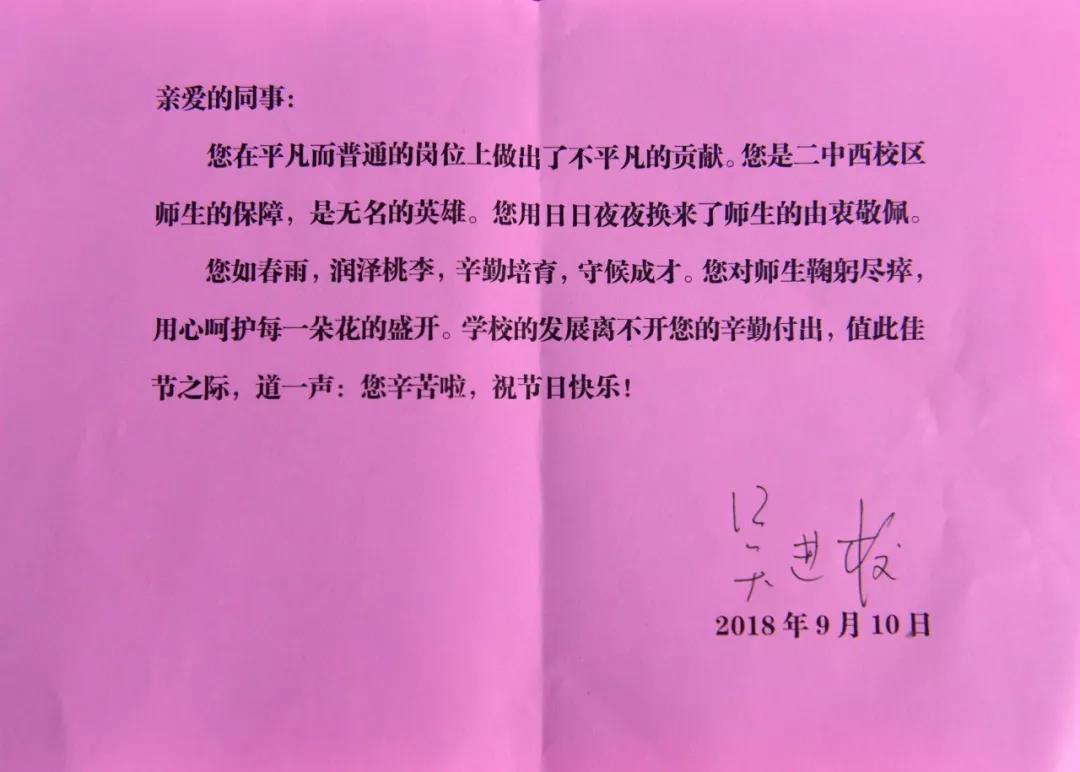 亲爱的同事：
您在平凡而普通的岗位上做出了不平凡的贡献。您是二中西校区
师生的保障，是无名的英雄。您用日日夜夜换来了师生的由衷敬佩。
您如春雨，润泽桃李，辛勤培育，守候成才。您对师生鞠躬尽瘁，
用心呵护每一朵花的盛开。学校的发展离不开您的辛勤付出，值此佳
节之际，道一声：您辛苦啦，祝节日快乐！
吴进校
2018年9月10日